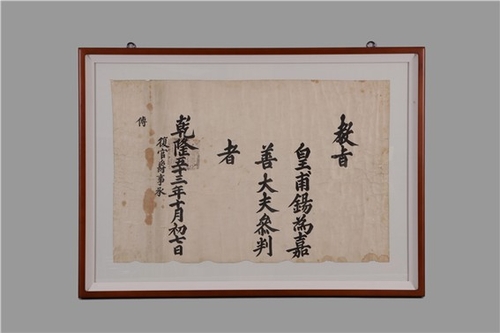 敎旨
皇甫錫為嘉
善大夫叅判
者
乾隆五十三年十月初七日
復官爵事承
傳